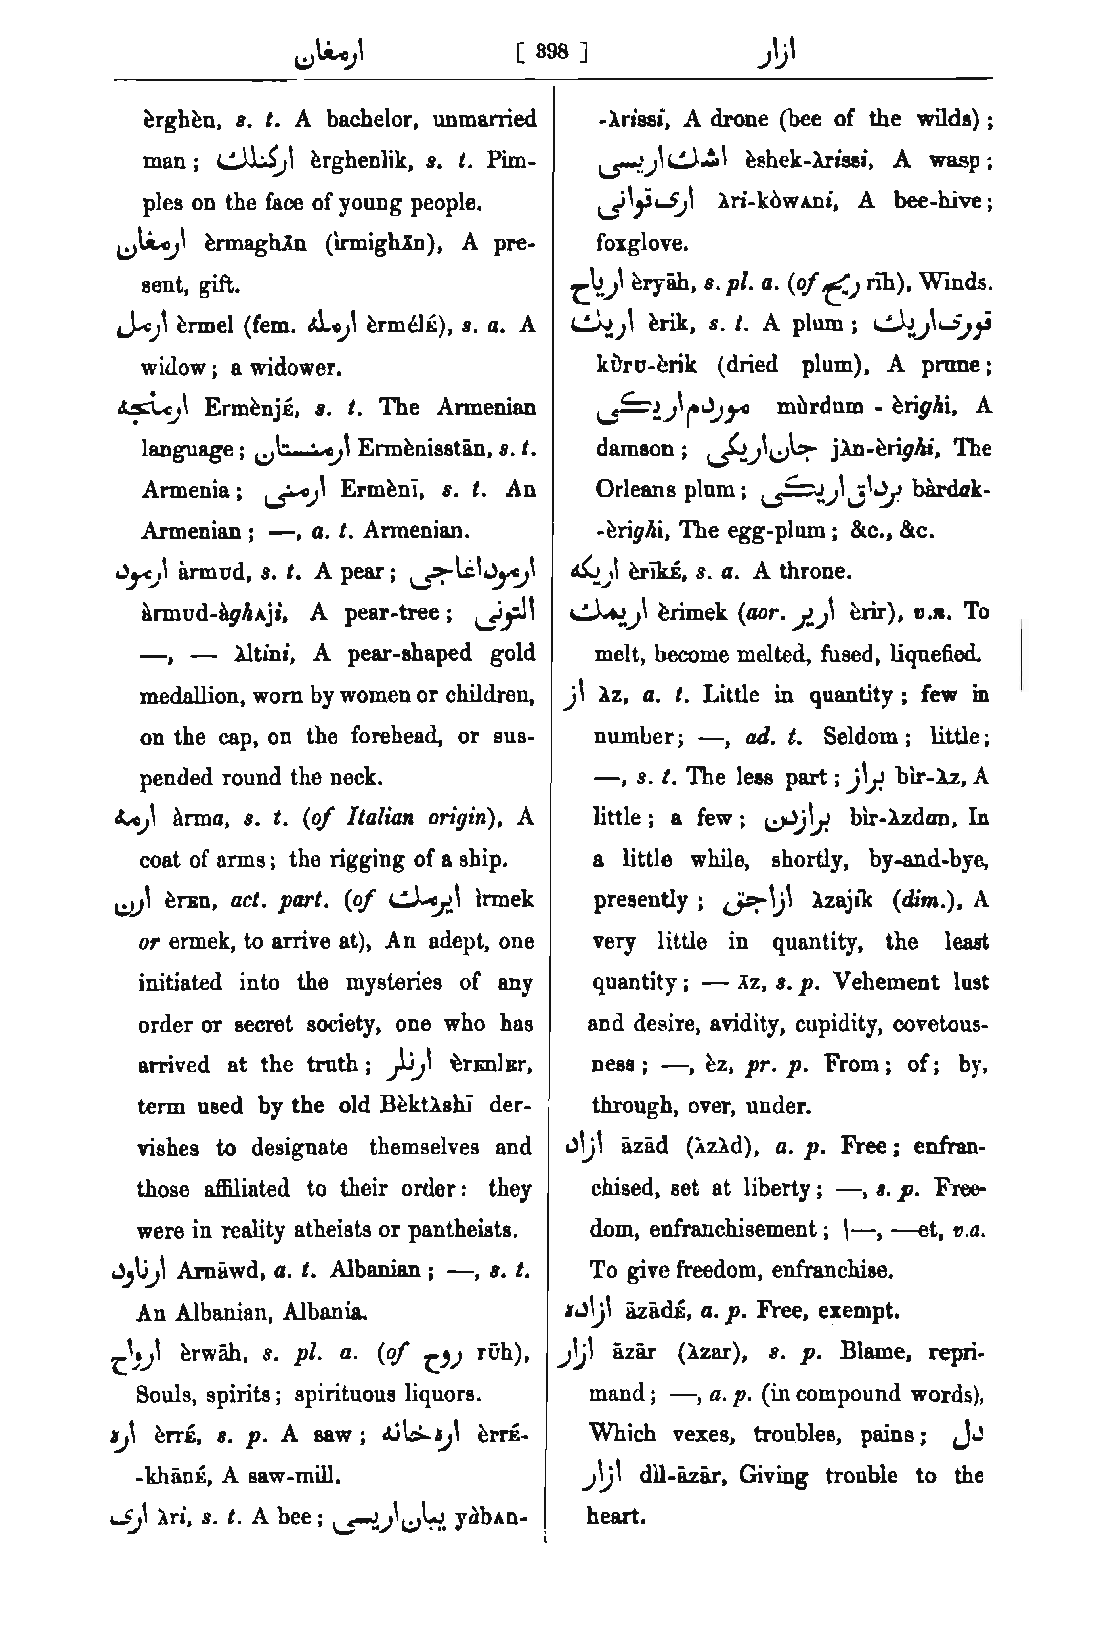 ارمغان [ 398 ] ازار
èrghèn, s. t. A bachelor, unmarried
man ; اركنلك èrghenlik, s. t. Pim-
ples on the face of young people.
ارمغان èrmaghān (ìrmighān), A pre-
sent, gift.
ارمل èrmel (fem. ارمله èrmélé), s. a. A
widow ; a widower.
ارمنجه Ermènjé, s. t. The Armenian
language ; ارمنستان Ermènisstān, s. t.
Armenia ; ارمنی Ermènī, s. t. An
Armenian ; —, a. t. Armenian.
ارمود àrmud, s. t. A pear ; ارموداغاجی
àrmud-àghaji, A pear-tree ; التونی
—, — àltini, A pear-shaped gold
medallion, worn by women or children,
on the cap, on the forehead, or sus-
pended round the neck.
ارمه àrma, s. t. (of Italian origin), A
coat of arms ; the rigging of a ship.
ارن èrEn, act. part. (of ايرمك ìrmek
or ermek, to arrive at), An adept, one
initiated into the mysteries of any
order or secret society, one who has
arrived at the truth ; ارنلر èrEnlEr,
term used by the old Bèktàshī der-
vishes to designate themselves and
those affiliated to their order : they
were in reality atheists or pantheists.
ارناود Arnāwd, a. t. Albanian ; —, s. t.
An Albanian, Albania.
ارواح èrwāh, s. pl. a. (of روح rūh),
Souls, spirits ; spirituous liquors.
اره èrré, s. p. A saw ; اره‌خانه èrré-
-khāné, A saw-mill.
اری àri, s. t. A bee ; يبان‌اريسی yàbAn-
-àrissi, A drone (bee of the wilds) ;
اشك‌اريسی èshek-àrissi, A wasp ;
اری‌قوانی àri-kòwAni, A bee-hive ;
foxglove.
ارياح èryāh, s. pl. a. (of ريح rīh), Winds.
اريك èrik, s. t. A plum ; قوری‌اريك
kùru-èrik (dried plum), A prune ;
موردم‌اريكی mùrdum - èrighi, A
damson ; جان‌اريكی jàn-èrighi, The
Orleans plum ; برداق‌اريكی bàrdak-
-èrighi, The egg-plum ; &c., &c.
اريكه èrīké, s. a. A throne.
اريمك èrimek (aor. ارير èrir), v.n. To
melt, become melted, fused, liquefied.
از àz, a. t. Little in quantity ; few in
number ; —, ad. t. Seldom ; little ;
—, s. t. The less part ; براز bìr-àz, A
little ; a few ; برازدن bìr-àzdan, In
a little while, shortly, by-and-bye,
presently ; ازاجق àzajik (dim.), A
very little in quantity, the least
quantity ; — āz, s. p. Vehement lust
and desire, avidity, cupidity, covetous-
ness ; —, èz, pr. p. From ; of ; by,
through, over, under.
ازاد āzād (àzàd), a. p. Free ; enfran-
chised, set at liberty ; —, s. p. Free-
dom, enfranchisement ; \—, —et, v.a.
To give freedom, enfranchise.
ازاده āzādé, a. p. Free, exempt.
ازار āzār (àzar), s. p. Blame, repri-
mand ; —, a. p. (in compound words),
Which vexes, troubles, pains ; دل
ازار dìl-āzār, Giving trouble to the
heart.